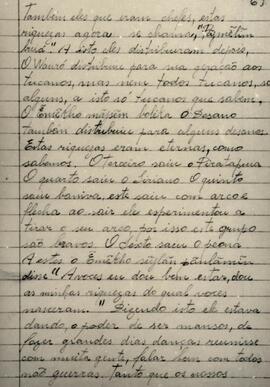 63
Também eles que eram chefes, estas
riquezas agora se chama,
A isto eles distribuiram depois,
O Wauró distribuiu para sua geração aos
tucanos, mas nem todos tucanos, só
alguns, a isto só tucanos que sabem.
O Emëkho mãsãm boléka O Desano
também distribuiu para alguns desanos.
Estas riquezas eram eternas, como
sabemos. O terceiro saiu o Piratapuia
O quarto saiu o Siriano. O quinto
saiu baniva, este saiu com arco e
flecha ao sair ele experimentou a
tirar o seu arco, por isso este grupo
são bravos. O Sexto saiu o peoná
A estes o Emëkho
disse "A voces eu dou bem estar, dou
as minhas riquezas do qual voces
nasceram." Dizendo isto ele estava
dando, o poder de ser mansos, de
fazer grandes dias dança reunirse
com muita gente, falar bem com todos
não guerras. Tanto que os nossos